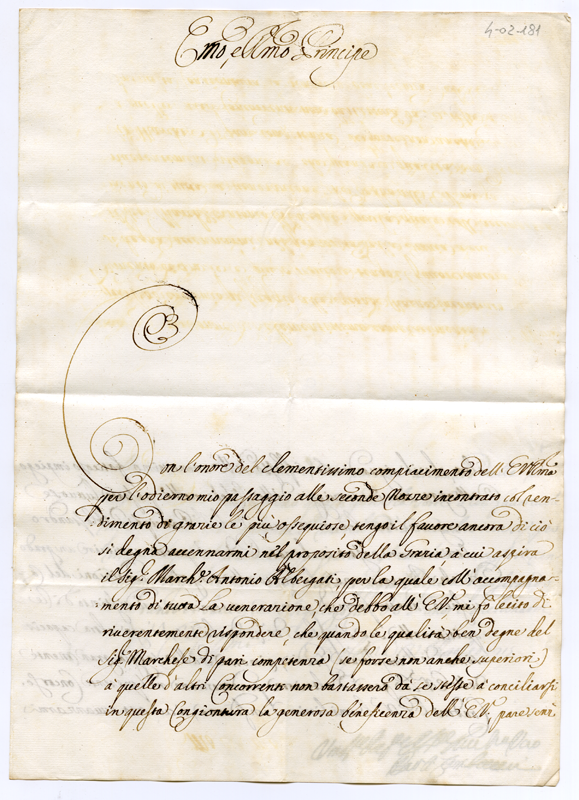 4-02-181
Emo, e Rmo Principe
Con l'onore del clementissimo compiacimento dell'E.V. Rma
per l'odierno mio passaggio alle seconde Nozze incontrato col ren-
dimento di grazie le più ossequiose tengo il favore ancora di ciò
si degna accennarmi nel proposito della Grazia à cui aspira
il Sig.r March.e Antonio Albergati, per la quale coll'accompagna-
mento di tutta la venerazione, che debbo all'E.V. mi fò lecito di
riverentemente rispondere, che quando le qualità ben degne del
Sig.r Marchese di pari competenza (se forse non anche superiori)
à quelle d'altri Concorrenti non bastassero da se stesse à conciliarsi
in questa Congiontura la generosa beneficenza dell'E.V., pare